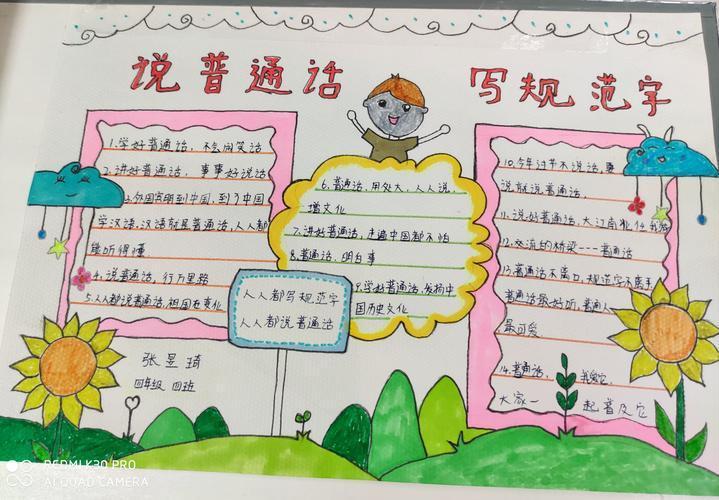 说普通话 写规范字
1.学好普通话，不会闹笑话
2.讲好普通话，事事好说话
3.外国宾朋到中国，到了中国
学汉语，汉语就是普通话，人人都
能听得懂
4.说普通话，行万里路
5.人人都说普通话，祖国更变化
6.普通话，用处大，人人说，
增文化
7.讲好普通话，走遍中国都不怕
8.普通话，明白事
9.学好普通话，发扬中
国历史文化
人人都写规范字
人人都说普通话
10.今年过节不说话，要
说就说普通话
11.说好普通话，大江南北任我
12.交流的桥梁---普通话
13.普通话不离口，规范字不离手
普通话最好听，普通人
最可爱
14.普通话， 我爱它，
大家一 起普及它
张昱琦
四年级 四班
REDMI K30 PRO
AI QUAD CAMERA